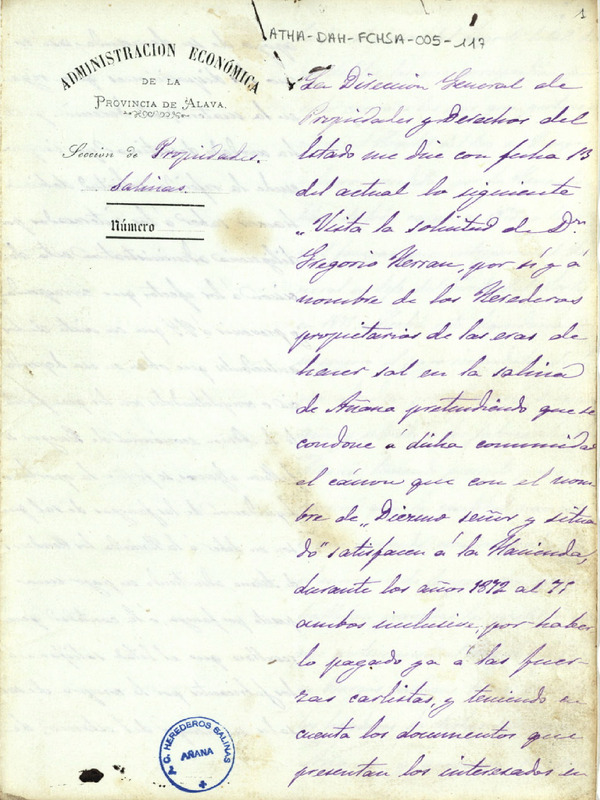 1
ATHA-DAH-FCHSA-005-117
ADMINISTRACION ECONÓMICA
DE LA
PROVINCIA DE ALAVA.
Seccion de Propiedades.
Salinas.
Número
La Direccion General de
Propiedades y Derechos del
Estado me dice con fecha 13
del actual lo siguiente
"Vista la solicitud de Dn
Gregorio Herran, por sí y á
nombre de los Herederos
propietarios de las eras de
hacer sal en la salina
de Añana pretendiendo que se
condone á dicha comunidad
el cánon que con el nom-
bre de "Diezmo señor y situa
do" satisfacen á la Hacienda,
durante los años 1872 al 75
ambos inclusive, por haber
lo pagado ya á las fuer-
zas carlistas, y teniendo en
cuenta los documentos que
presentan los interesados en
C. HEREDEROS SALINAS
AÑANA